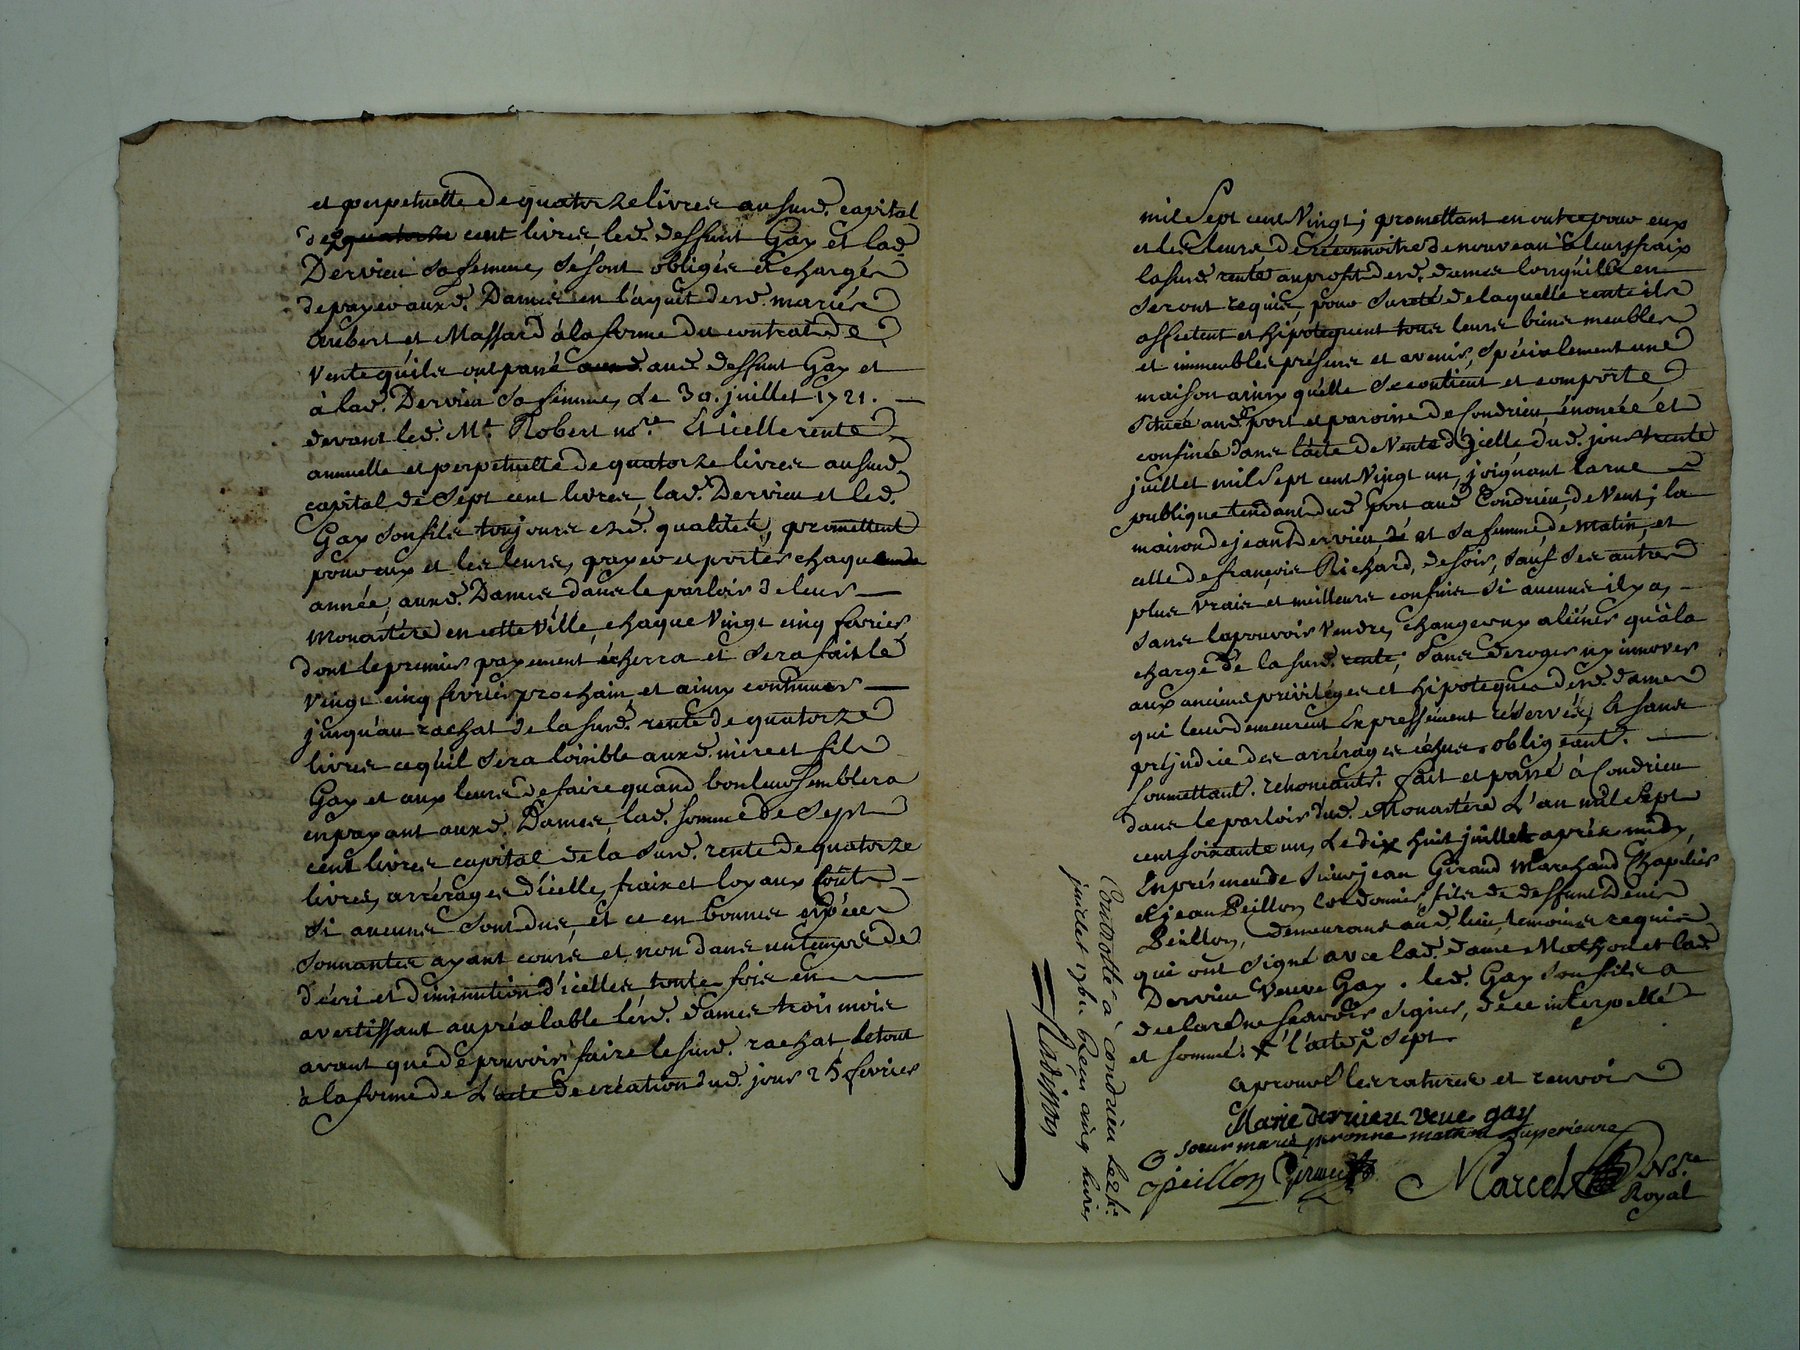 et perpetuelle de quatorze livres au surd. capital
de quatorze cent livres led. deffunt Gay et lad.
Dervieu sa femme, se sont obligés et chargés
de payer auxd. Dames en l'aquit desd. mariés
Aubert et Massard à la forme du contrat de
vente qu'ils ont passé aud. deffunt Gay et
à lad. Dervieu sa femme, Le 30. juillet 1721.
devant led. Mt. Robert nore. Et icelle rente
annuelle et perpetuelle de quatorze livres au surd.
capital de sept cent livres lad. Dervieu et led.
Gay son fils toujours ezd. qualités, promettent
pour eux et les leurs, payer et porter chaque
année, auxd. Dames dans le parloir de leur
Monastére en cette ville, chaque vingt cinq fevrier
dont le premier payement écherra et sera fait le
vingt cinq fevrier prochain, et ainsy continuer
jusqu'au rachat de la surd. rente de quatorze
livres ce qu'il sera loisible auxd. mere et fils
Gay et aux leurs de faire quand bon leur semblera
en payant auxd. Dames, lad. somme de sept
cent livres capital de la surd. rente de quatorze
livres, arrérages d'icelle, fraix et loyaux couts
si aucuns sont dus, et ce en bonnes espéces
sonnantes ayant cours et non dans un temps de
décri et diminution d'icelles toute fois en
avertissant au préalable lesd. dames trois mois
avant que de pouvoir faire le surd. rachat, le tout
à la forme de L'acte de création dud. jour 25 fevrier
mil sept cent vingt; promettant en outre pour eux
et les leurs de reconnoitre de nouveau à leurs fraix
la surd. rente au profit desd. dames lorsqu'ils en
seront requis, pour sureté de laquelle rente ils
affectent et hipotequent tous leurs biens meubles
et immeubles présens et avenir, spécialement une
maison ainsy qu'elle se contient et comporte
située aud. port et paroisse de Condrieu énoncée et
confinée dans l'acte de vente d'Icelle dud. jour trente
juillet mil sept cent vingt un, joignant la rue
publique tendant dud. port aud. Condrieu, de vent; la
maison de jean Dervieu dé et sa femme, de matin, et
celle de françois Richard, de soir, sauf ses autres
plus vrais et meilleurs confins si aucuns il y a,
sans la pouvoir vendre, changer ny aliéner qu'à la
charge de la surd. rente, sans deroger ny innover
aux anciens priviléges et hipoteques desd. dames
qui leur demeurent Expressément réservés, Et sans
préjudice des arrérages échus. obligeant.
soumettant. renoncants. fait et passé à Condrieu
dans le parloir dud. Monastére L'an mil sept
cent soixante un, Le dix huit juillet aprés midy,
En présence de sieur jean Giraud Marchand Chapelier
et jean Peillon Cordonnier, fils de deffunt denis
Peillon, demeurans aud. lieu, temoins requis
qui ont signé avec lad. dame Mathon et lad.
Dervieu veuve Gay. led. Gay son fils a
declaré ne scavoir signer, de ce interpellé
et sommé. X l'acte sept
aprouvé les ratures et renvoi
Marie dervieu veue gay
soeur marie peronne mathon superieure
peillon Giraud
Marcel Nore.
Royal
Controllé à Condrieu le 24e.
juillet 1761. Reçu cinq livres